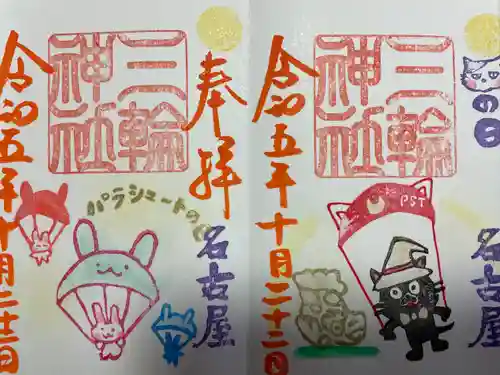 奉拝
三輪神社
パラシュートの
名古屋
令和五年十月二十二日
の日
三輪神社
PST
名古屋
令和五年十月二十二日